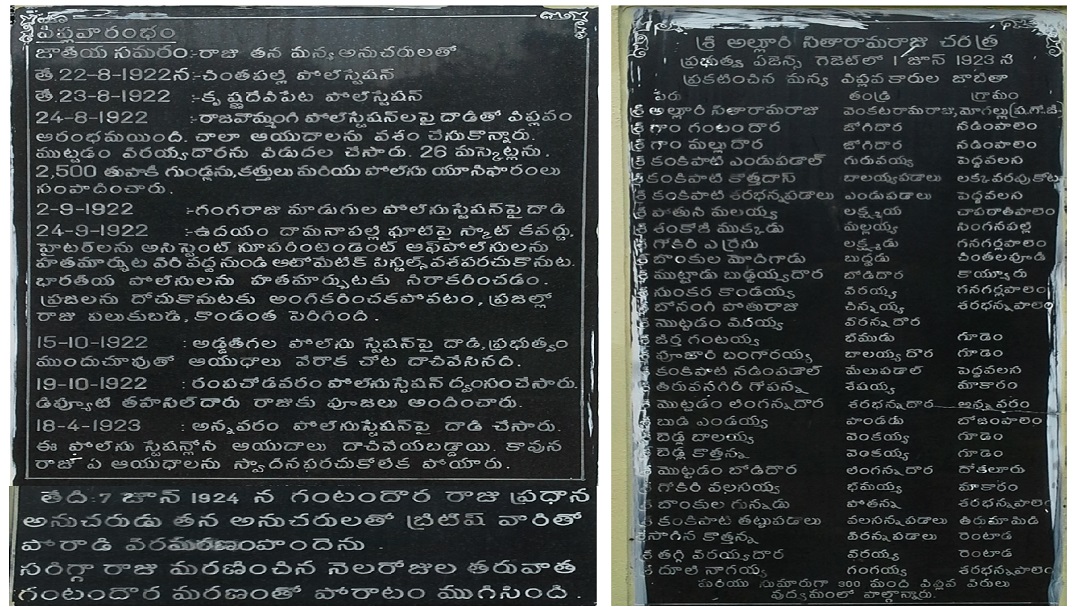 విప్లవారంభం
జాతీయ సమరం:-రాజు తన మన్య అనుచరులతో
తే.22-8-1922న:-చింతపల్లి పోలీస్టేషన్
తే.23-8-1922 :-కృష్ణదేవిపేట పోలీస్టేషన్
24-8-1922 :-రాజవొమ్మంగి పోలీస్టేషన్‌లపై దాడితో విప్లవం
ఆరంభమయింది. చాలా ఆయుధాలను వశం చేసుకొన్నారు.
ముట్టడం వీరయ్యదొరను విడుదల చేసారు. 26 మస్కెట్లను.
2,500 తుపాకీ గుండ్లను,కత్తులు మరియు పోలీసు యూనిఫారంలు
సంపాదించారు.
2-9-1922 :-గంగరాజు మాడుగుల పోలీసుస్టేషన్‌పై దాడి
24-9-1922 :-ఉదయం దామనాపల్లి ఘాట్‌పై స్కాట్ కవర్టు,
హైటర్‌లను అసిస్టెంట్ సూపరింటెండెంట్ ఆఫ్‌పోలీసులను
హతమార్చుట వేరి వద్దనుండి ఆటోమేటిక్ పిస్టల్స్ వశపరచుకొనుట.
భారతీయ పోలీసులను హతమార్చుటకు నిరాకరించడం.
ప్రజలను దోచుకొనుటకు అంగీకరించకపోవటం, ప్రజల్లో
రాజు పలుకుబడి, కొండంత పెరిగింది.
15-10-1922 : అడ్డతీగల పోలీసు స్టేషన్‌పై దాడి,ప్రభుత్వం
ముందుచూపుతో ఆయుధాలు వేరొక చోట దాచివేసినది.
19-10-1922 : రంపచోడవరం పోలీసుస్టేషన్ ధ్వంసంచేసారు.
డిప్యూటీ తహసీల్‌దారు రాజుకు పూజలు అందించారు.
18-4-1923 : అన్నవరం పోలీసుస్టేషన్‌పై దాడి చేసారు.
ఈ పోలీసు స్టేషన్లోని ఆయుధాలు దాచివేయబడ్డాయి. కావున
రాజు ఏ ఆయుధాలను స్వాధీనపరచుకోలేక పోయారు.
తేది:7 జూన్ 1924 న గంటందొర రాజు ప్రధాన
అనుచరుడు తన అనుచరులతో బ్రిటీష్ వారితో
పోరాడి వీరమరణంపొందెను
సరిగ్గా రాజు మరణించిన నెలరోజుల తరువాత
గంటందొర మరణంతో పోరాటం ముగిసింది.
శ్రీ అల్లూరి సీతారామరాజు చరిత్ర
ప్రభుత్వ ఏజెన్సీ గెజిట్‌లో 1 జూన్ 1923 న
ప్రకటించిన మన్య విప్లవకారుల జాబితా
పేరు తండ్రి గ్రామం
శ్రీ అల్లూరి సీతారామరాజు వెంకటరామరాజు,మోగల్లు(ప.గో.జి)
శ్రీ గాం గంటం దొర బోగిదొర నడింపాలెం
శ్రీ గాం మల్లు దొర బోగిదొర నడింపాలెం
శ్రీ కంకిపాటి ఎండుపడాల్ గురువయ్య పెద్దవలస
శ్రీ కంకిపాటి కొత్తదాస్ బాలయ్యపడాలు లక్కవరపుకోట
శ్రీ కంకిపాటి శరభన్నపడాలు ఎండుపడాలు పెద్దవలస
శ్రీ పాతుని మలయ్య లక్ష్మయ్య చాపరాతిపాలెం
శ్రీ శంకోజీ ముక్కడు మల్లయ్య సింగనపల్లి
శ్రీ గోకిరి ఎర్రేసు లక్ష్మడు గనగర్లపాలెం
శ్రీ బొంకుల మోదిగాడు బుడ్డడు చింతలపూడి
శ్రీ ముట్టాడం బుడ్డయ్యదొర బోడిదొర కొయ్యూరు
శ్రీ సుంకర కొండయ్య వీరయ్య గనగర్లపాలెం
శ్రీ బోనంగి పోతురాజు చిన్నయ్య శరభన్నపాలెం
శ్రీ మొట్టడం వీరయ్య వీరన్నదొర
శ్రీ జర్తి గంటయ్య భీముడు గూడెం
శ్రీ పూజారి బంగారయ్య బాలయ్య దొర గూడెం
కంకిపాటి నడింపడాల్ మలుపడాల్ పెద్దవలస
శ్రీ తిరువనగిరి గోపన్న శేషయ్య మాకారం
శ్రీ మొట్టడం లింగన్నదొర శరభన్నదొర అన్నవరం
శ్రీ బుడి ఎండయ్య పాండడు బోజంపాలెం
శ్రీ బెడ్డి బాలయ్య వెంకయ్య గూడెం
శ్రీ బెడ్డి కొత్తన్న వెంకయ్య గూడెం
శ్రీ మొట్టడం బోడిదొర లింగన్నదొర దోకులూరు
శ్రీ గోకిరి వలసయ్య భీమయ్య మాకారం
శ్రీ బొంకుల గున్నడు పోతన్న శరభన్నపాలెం
శ్రీ కంకిపాటి తట్టుపడాలు వలసన్నపడాలు తీరుమామిడి
శ్రీ సాగిన కొత్తన్న వీరన్నపడాలు రొంటాడ
శ్రీ తగ్గి వీరయ్యదొర వీరయ్య రొంటాడ
శ్రీ దూలి నాగయ్య గంగయ్య శరభన్నపాలెం
మరియు సుమారుగా 300 మంది విప్లవ వీరులు
ఉద్యమంలో పాల్గొన్నారు.